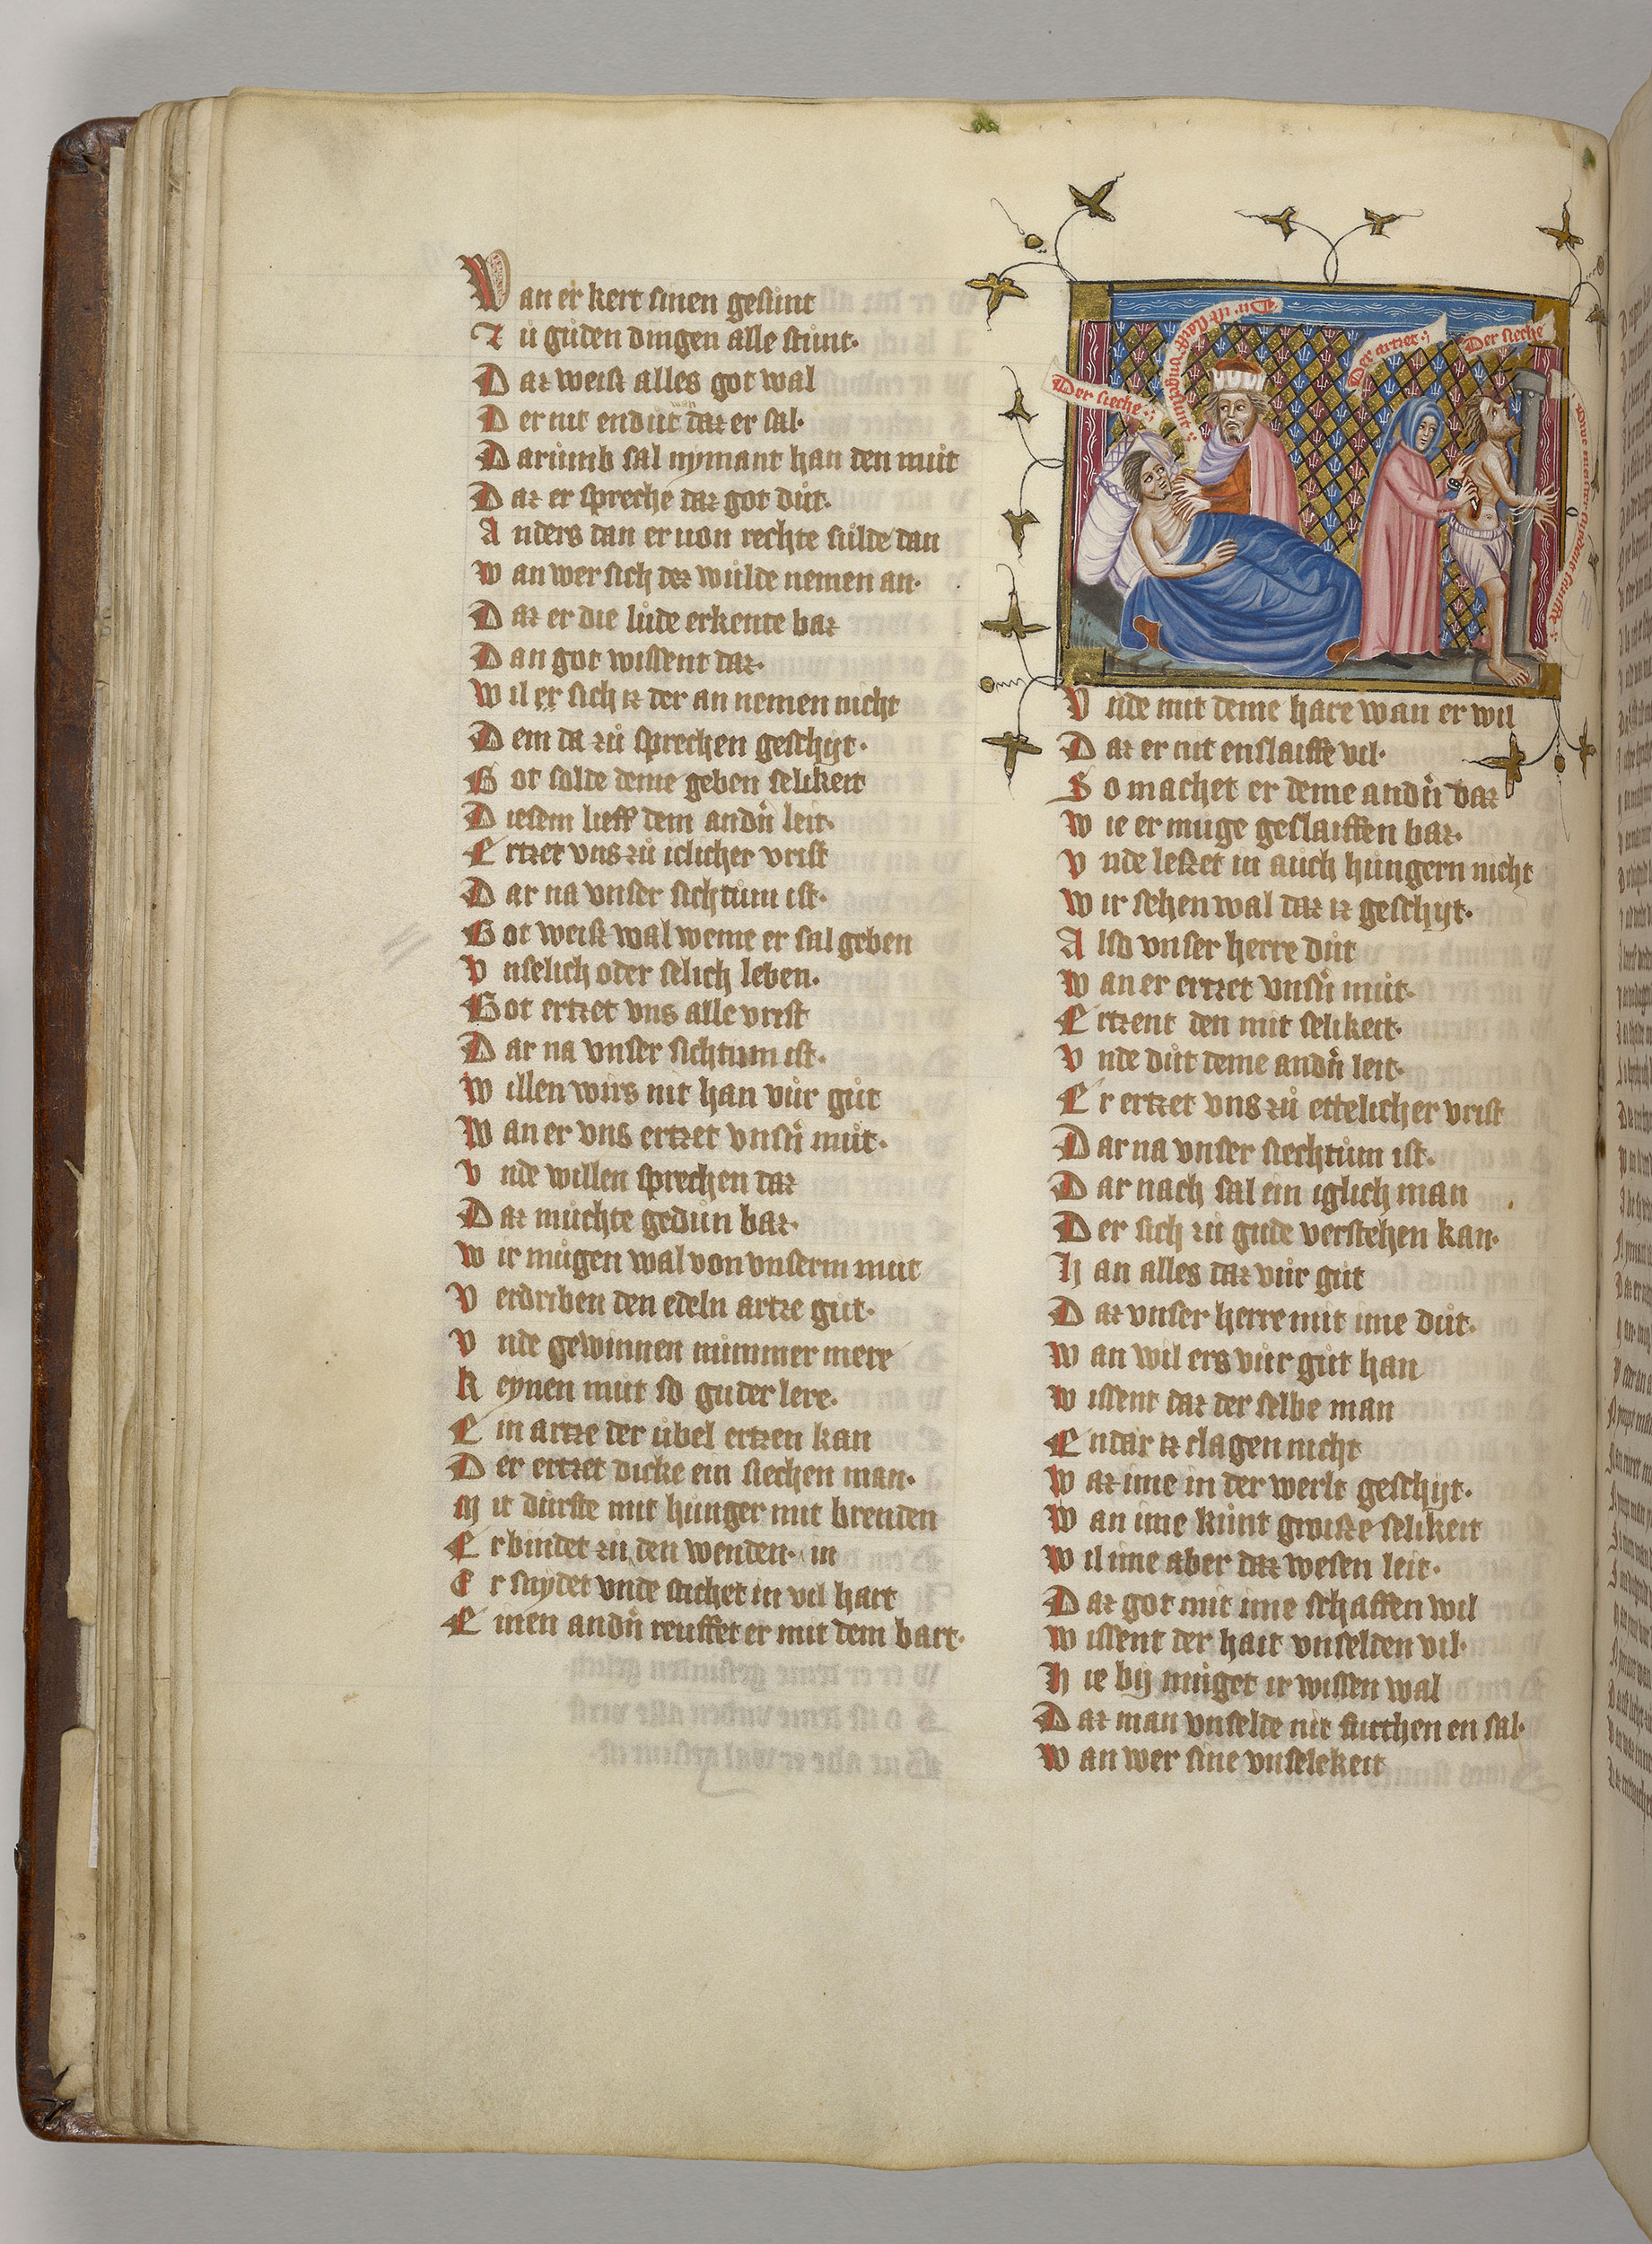 Wan er kert sinen gesůnt
Zů gůden dingen alle stůnt·
Daz weist alles got wal
Der nit endůt daz er sal·
Darůmb sal nymant han den můt
Daz er spreche daz got důt·
Anders dan er uon rechte sůlde dan
Wan wer sich dez wůlde nemen an·
Daz er die lůde erkente baz
Dan got wissent daz·
Wil er sich iz der an nemen nicht
Dem da zů sprechen geschijt·
Got solde deme geben selikeit
Diesem lieff dem andn̄ leit·
Ertzet vns zů iclicher vrist
Dar na vnser sichtům ist·
Got weist wal weme er sal geben
Vnselich oder selich leben·
Got ertzet vns alle vrist
Dar na vnser sichtum ist·
Willen wirs nit han vůr gůt
Wan er vns ertzet vnsn̄ můt·
Vnde willen sprechen daz
Daz můchte gedůn baz·
Wir můgen wal von vnserm mut
Verdriben den edeln artze gůt·
Vnde gewinnen nůmmer mere
Keynen mut so guder lere·
Ein artze der ůbel ertzen kan
Der ertzet dicke ein siechen man·
Mit důrste mit hůnger mit brenden
Er bindet zů den wenden· in
Er snydet vnde stichet in vil hart
Einen andn̄ reuffet er mit dem bart·
Der sieche·:
Der artzet·:
Der sieche
Vnde mit deme hare wan er wil
Daz er nit enslaiffe vil·
So machet er deme andn̄ baz
Wie er muge geslaiffen baz·
Vnde leszet in auch hůngern nicht
Wir sehen wal daz iz geschijt·
Also vnser herre důt
Wan er ertzet vnsn̄ můt·
Ertzent den mit selikeit·
Vnde důt deme andn̄ leit·
Er ertzet vns zů ettelicher vrist
Dar na vnser siechtům ist·
Dar nach sal ein iglich man
Der sich zů gude verstehen kan·
Han alles daz vůr gůt
Daz vnser herre mit ime důt·
Wan wil ers vůr gůt han
Wissent daz der selbe man
Endar iz clagen nicht
Waz ime in der werlt geschijt·
Wan ime kůnt groisze selikeit
Wil ime aber daz wesen leit·
Daz got mit ime schaffen wil
Wissent der hait vnselden vil·
Hie bij můget ir wissen wal
Daz man vnselde nit furchen en sal·
Wan wer sine vnselekeit